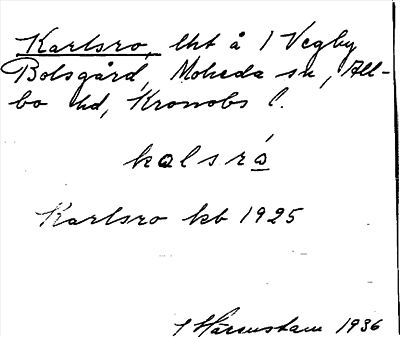 Karlsro, lht å 1 Vegby
Bolsgård, Moheda sn, All-
bo hd, Kronobs l.
kalsró
Karlsro kb 1925
1936